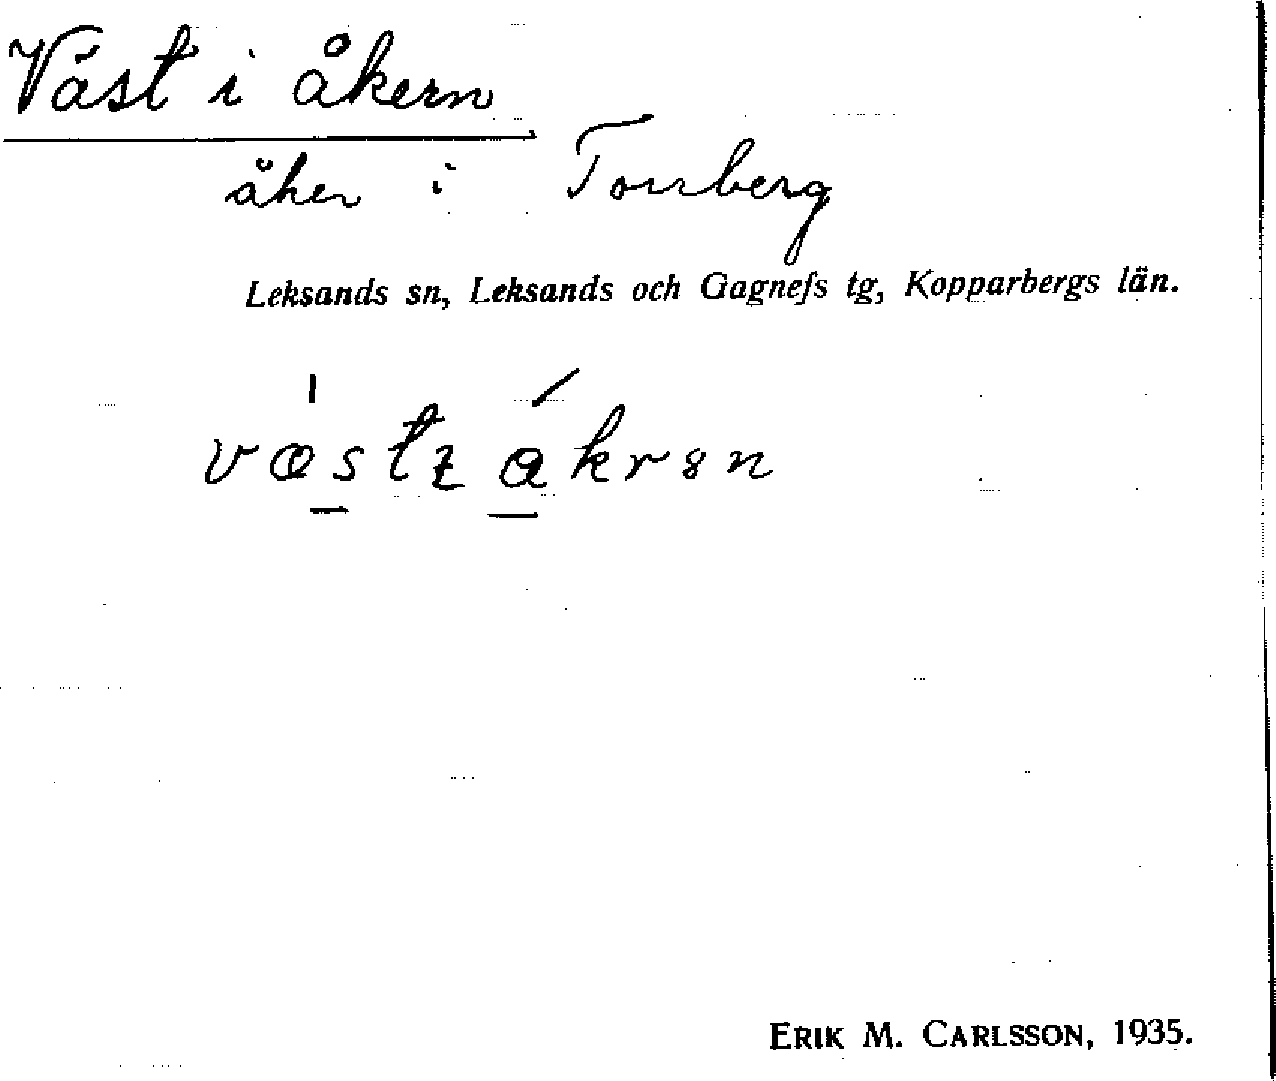 Väst i åkern
åker i Torrberg
Leksands sn, Leksands och Gagnefs tg, Kopparbergs län.
ERIK M. CARLSSON, 1935.